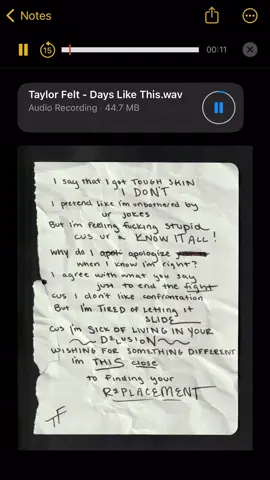 Notes
15
00:11
Taylor Felt - Days Like This.wav
Audio Recording · 44.7 MB
I say that I got TOUGH SKIN
I DON'T
I pretend like i'm unbothered by
ur jokes
But i'm feeling fucking stupid
cus ur a KNOW IT ALL!
Why do I apol apologize
when I know i'm right?
I agree with what you say
just to end the fight
cus I don't like confrontation
But i'm TIRED of letting it
SLIDE
cus i'm SICK OF LIVING IN YOUR
DELUSION
WISHING FOR SOMETHING DIFFERENT
i'm THIS close
to finding your
REPLACEMENT
TF